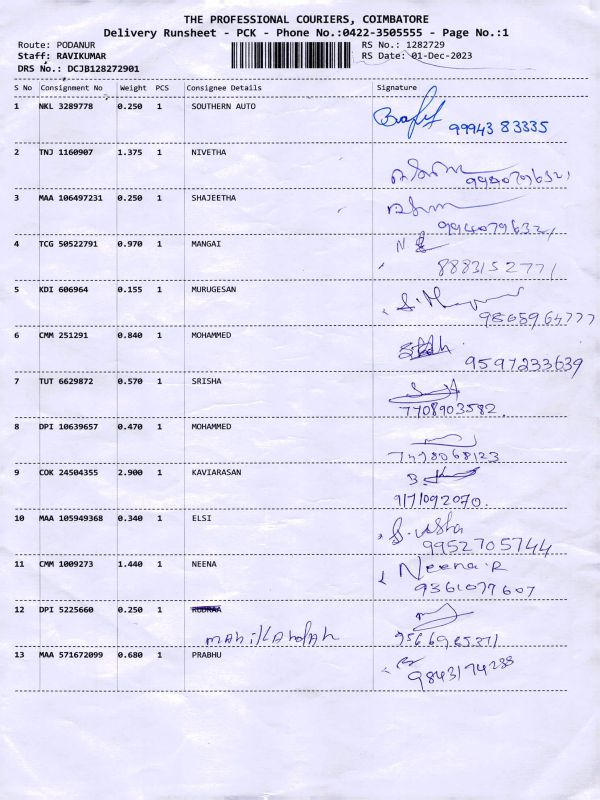 THE PROFESSIONAL COURIERS, COIMBATORE
Delivery Runsheet - PCK - Phone No.:0422-3505555 - Page No.:1
Route: PODANUR RS No.: 1282729
Staff: RAVIKUMAR RS Date: 01-Dec-2023
DRS No.: DCJB128272901
S No Consignment No Weight PCS Consignee Details Signature
1 NKL 3289778 0.250 1 SOUTHERN AUTO
99943 83335
2 TNJ 1160907 1.375 1 NIVETHA
3 MAA 106497231 0.250 1 SHAJEETHA
4 TCG 50522791 0.970 1 MANGAI
8883152771
5 KDI 606964 0.155 1 MURUGESAN
6 CMM 251291 0.840 1 MOHAMMED
9597233639
7 TUT 6629872 0.570 1 SRISHA
7708903582.
8 DPI 10639657 0.470 1 MOHAMMED
9 COK 24504355 2.900 1 KAVIARASAN
9171092070.
10 MAA 105949368 0.340 1 ELSI
S. Usha
9952705744
11 CMM 1009273 1.440 1 NEENA
Neena.R
9361079607
12 DPI 5225660 0.250 1 RUDRAA
13 MAA 571672099 0.680 1 PRABHU
9843174238